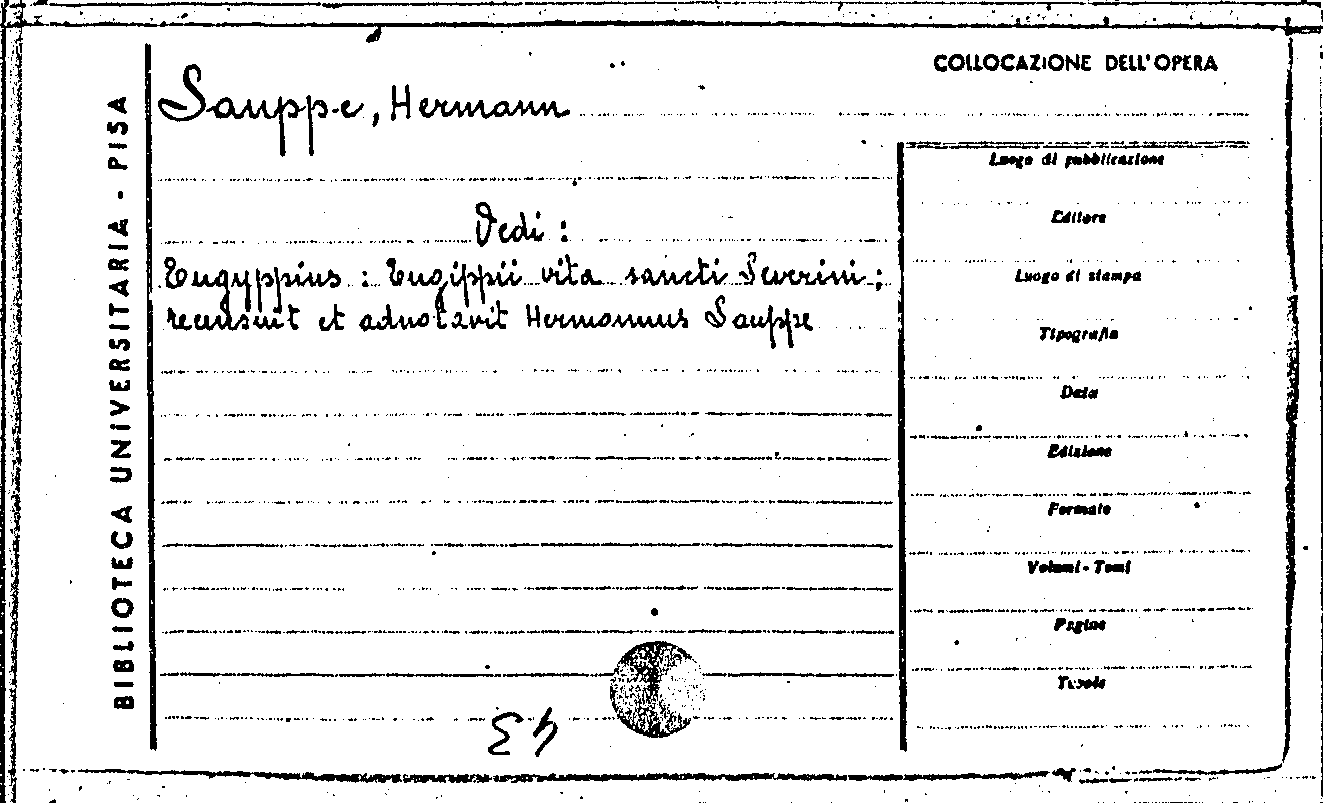 BIBLIOTECA UNIVERSITARIA - PISA
COLLOCAZIONE DELL'OPERA
Sauppe, Hermann
Vedi :
Eugyppius : Eugippii vita sancti Severini ;
recensuit et adnotavit Hermannus Sauppe
Luogo di pubblicazione
Editore
Luogo di stampa
Tipografia
Data
Edizione
Formato
Volumi - Tomi
Pagine
Tavole